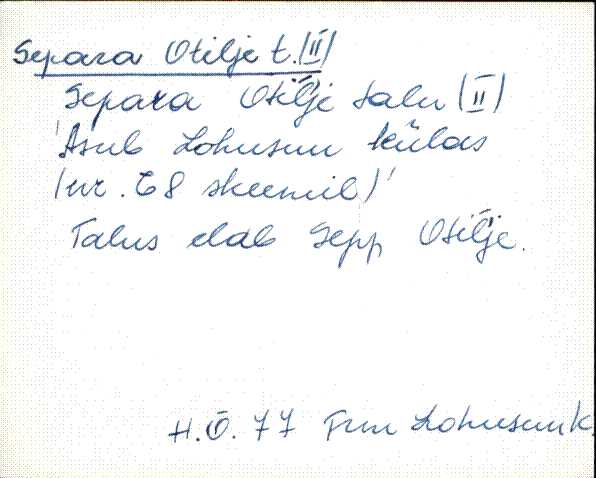 Separa Otilje t. (II)
Separa Otilje talu (II)
'Asub Lohusuu külas
(nr. 68 skeemil)'
Talus elab Sepp Otilje.
H.Õ. 77 Trm Lohusuu k.